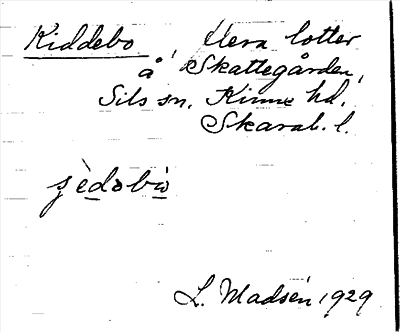 Kiddebo, flera lotter
å Skattegården,
Sils sn, Kinne hd.
Skarab. l.
L. Madsén 1929